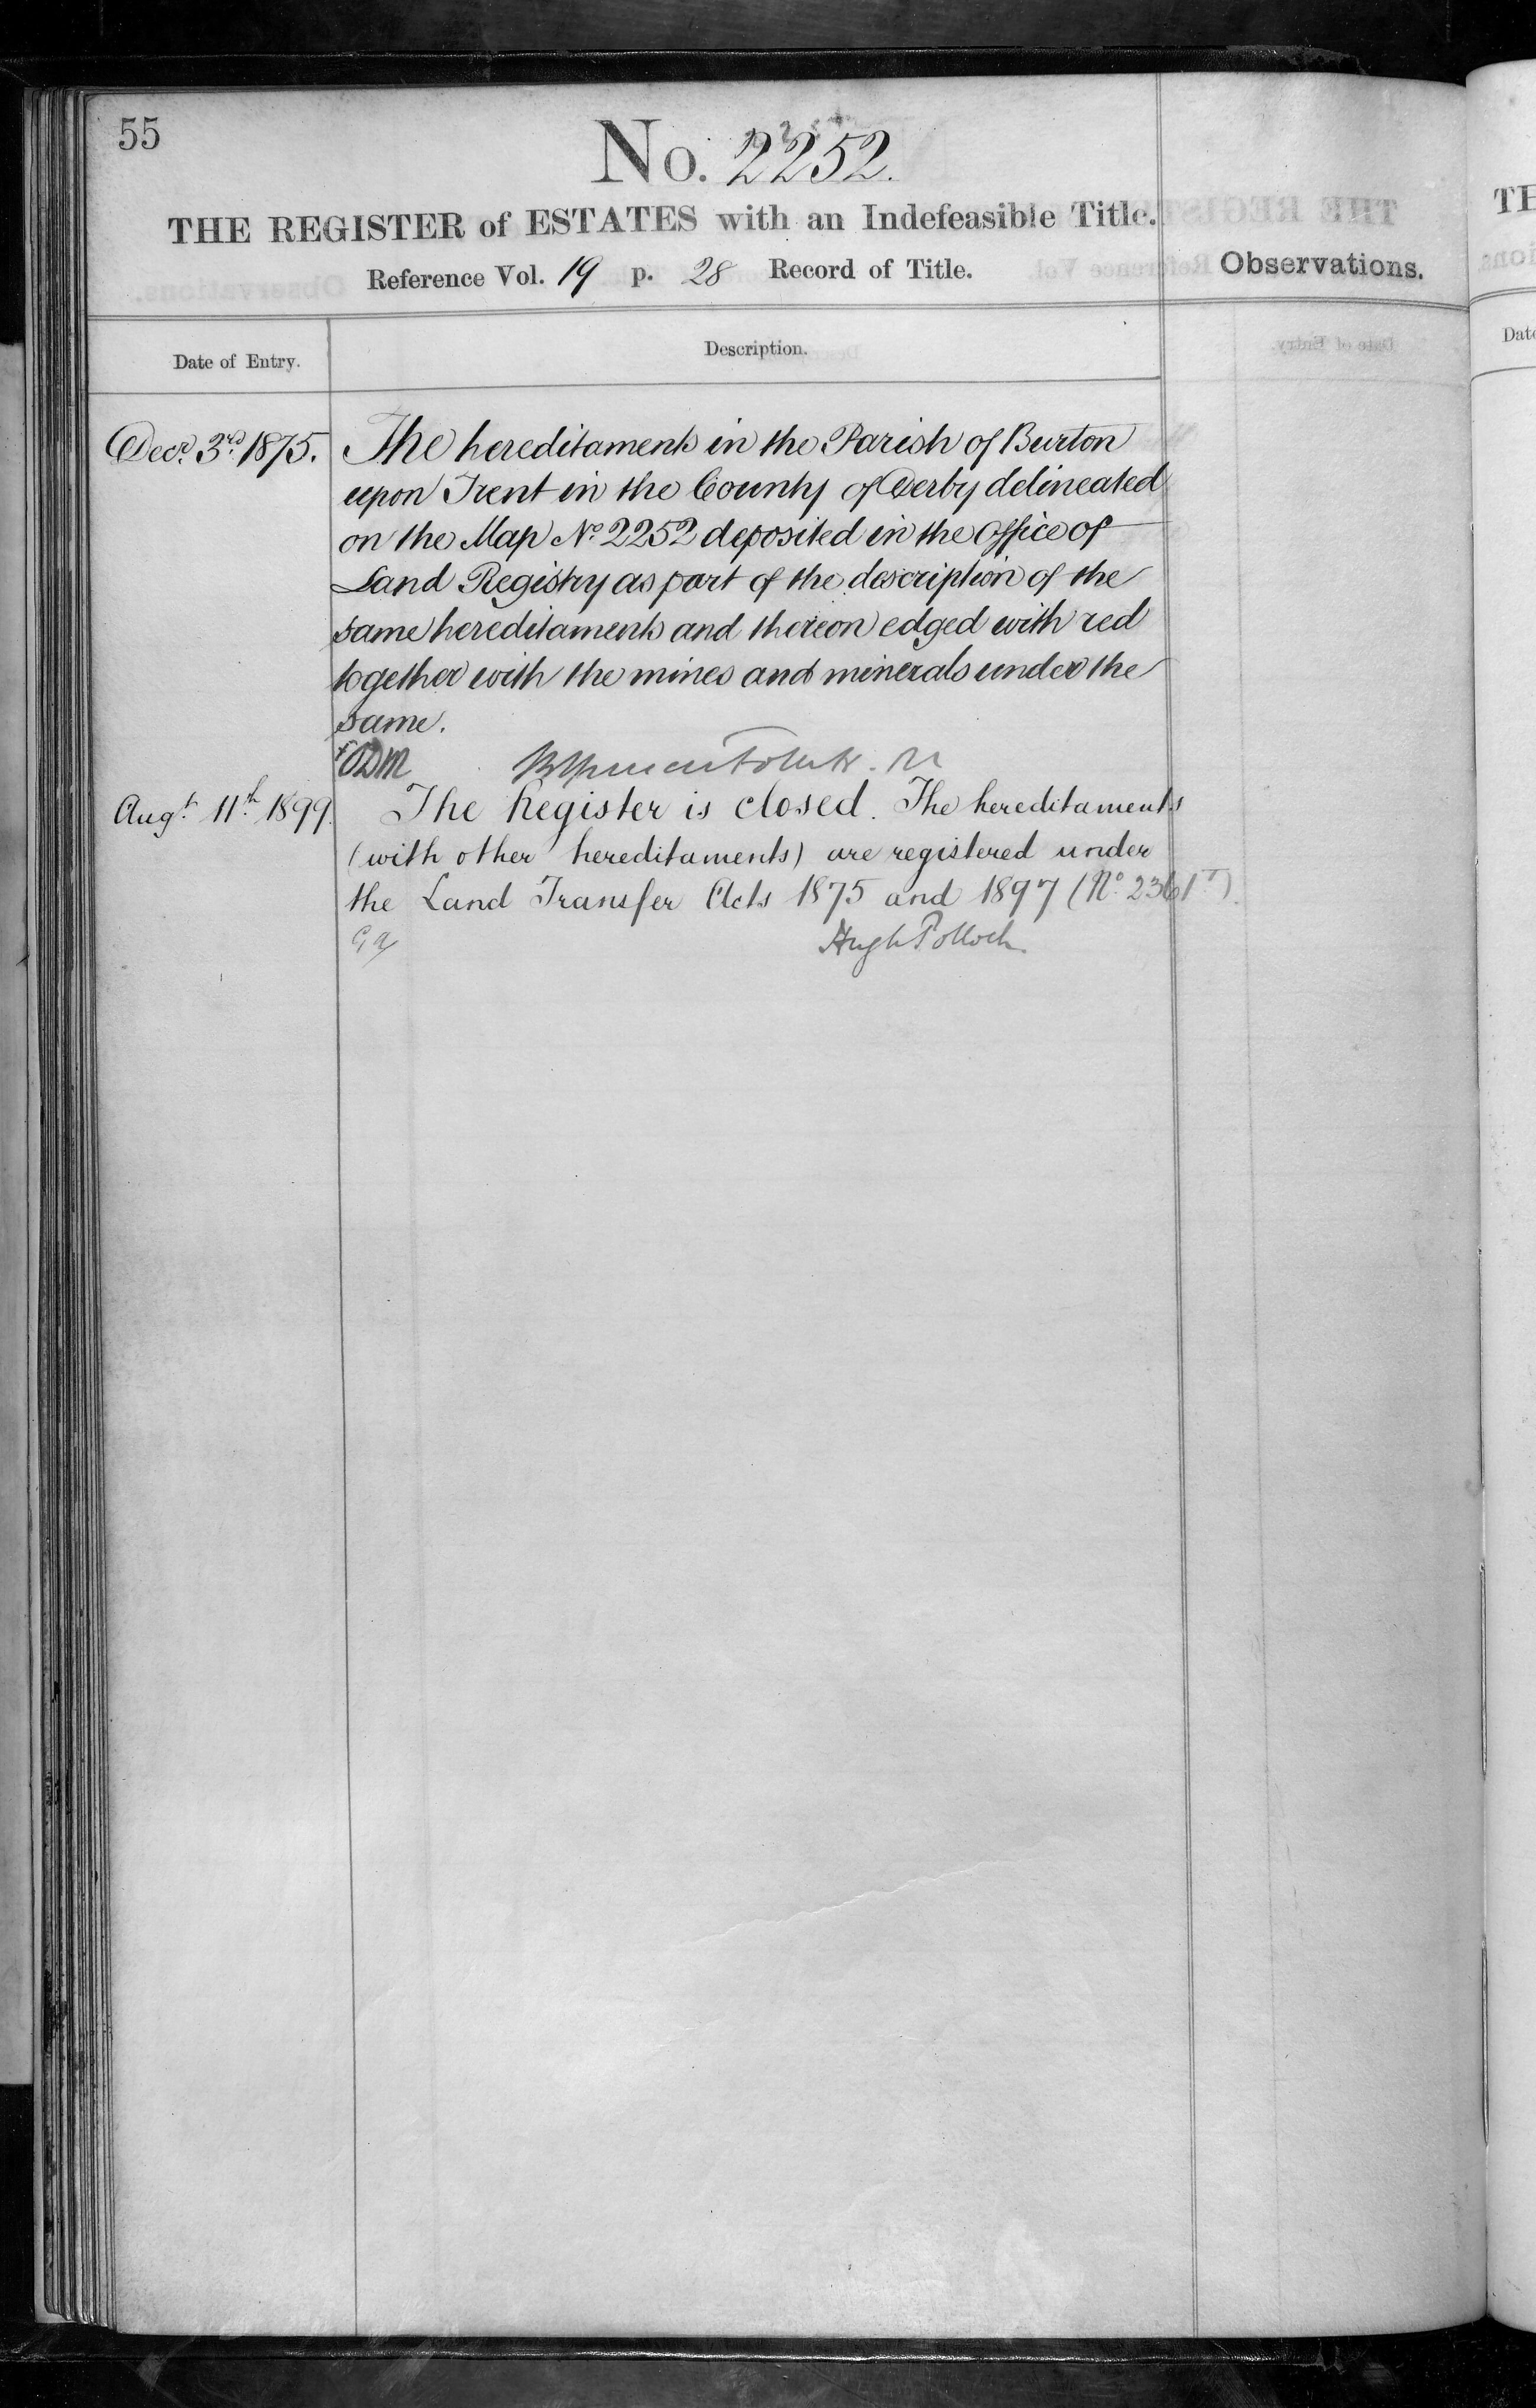 55
No. 2252.
THE REGISTER of ESTATES with an Indefeasible Title.
Reference Vol. 19 p. 28 Record of Title.
Observations.
Date of Entry.
Description.
Decr. 3rd 1875.
The hereditaments in the Parish of Burton
upon Trent in the County of Derby delineated
on the Map No. 2252 deposited in the Office of
Land Registry as part of the description of the
same hereditaments and thereon edged with red
together with the mines and minerals under the
same.
Augt. 11th 1899.
The Register is closed. The hereditaments
(with other hereditaments) are registered under
the Land Transfer Acts 1875 and 1897 (No. 2361
Hugh Pollock